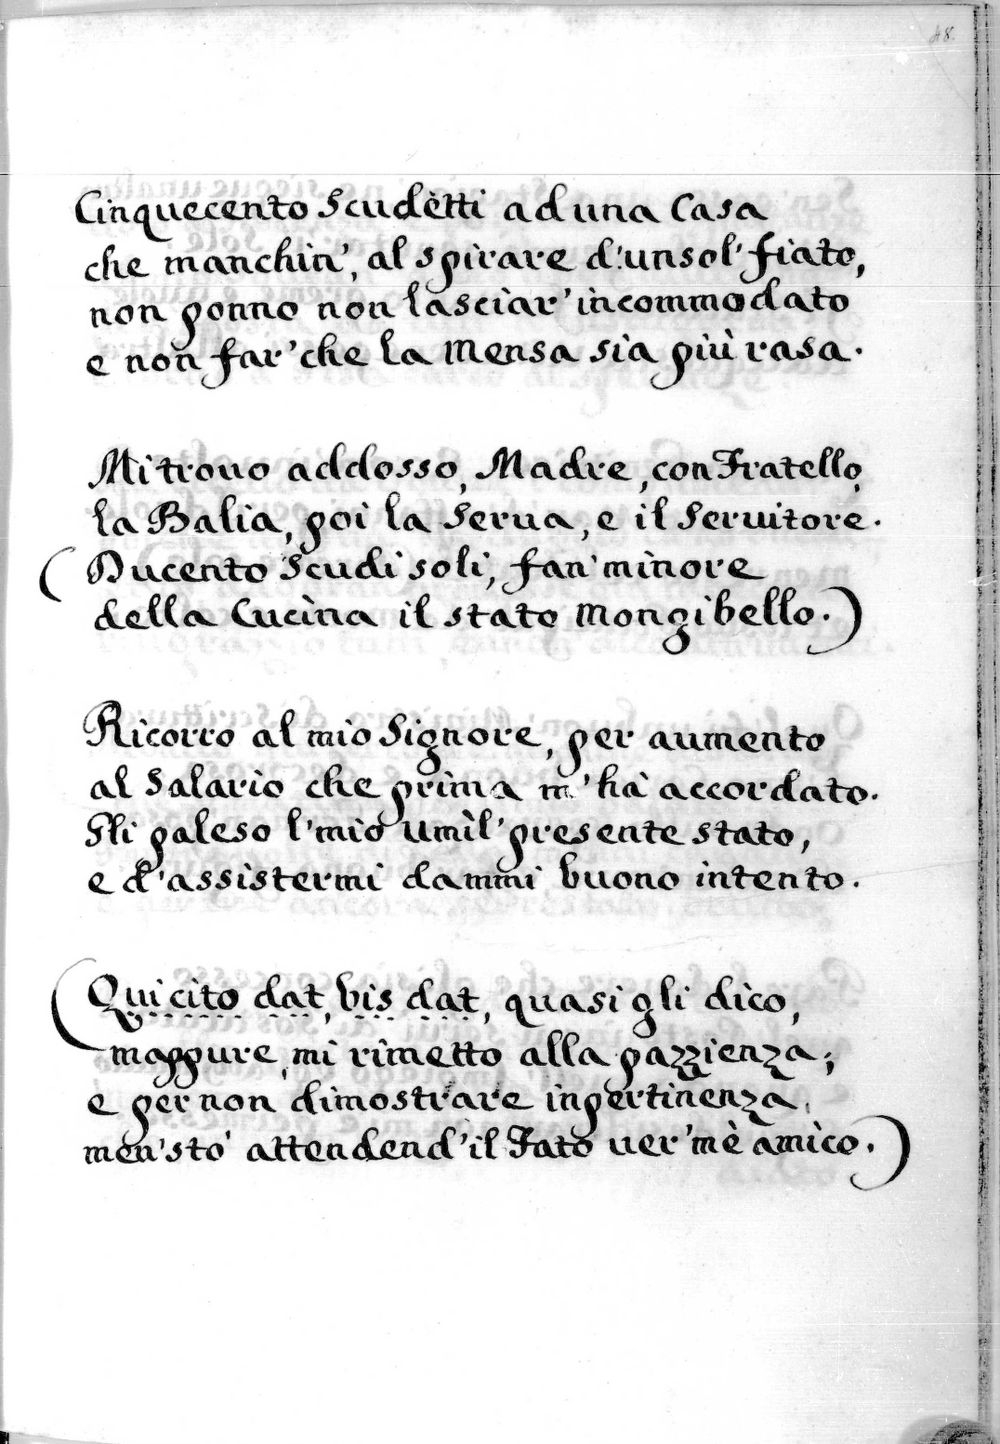 48.
Cinquecento Scudètti ad una Casa
che manchin', al spirare d'un sol' fiato,
non ponno non lasciar' incommodato
e non far' che la Mensa sia più rasa.
Mi trouo addosso, Madre, con Fratello,
la Balia, poi la Serua, e il Seruitore.
(Ducento Scudi soli, fan' minore
della Cucina il stato Mongibello.)
Ricorro al mio Signore, per aumento
al Salario che prima m'hà accordato.
Gli paleso l'mio Umil' presente stato,
e d'assistermi dammi buono intento.
(Qui cito dat, bis dat, quasi gli dico,
mappure, mi rimetto alla pazzienza;
e per non dimostrare inpertinenza,
men' stò attendend' il Fato uer' mè amico.)